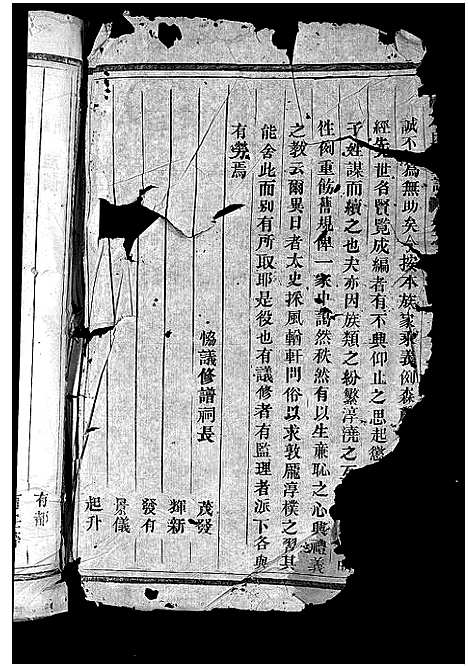 誠不為無助矣今按本族家乘義例森
經先世各賢覽成編者有不興仰止之思起懲
子姓謀而續之也夫亦因族類之紛繁淳澆之
性例重飭舊規俾一家中藹然秩然有以生廉恥之心興禮義
之教云爾異日者太史採風輶軒問俗以求敦龐淳樸之習其
能舍此而別有所取耶是役也有議修者有監理者派下各與
有勞焉
恊議修譜祠長
茂發
輝新
發有
景儀
起升
有部